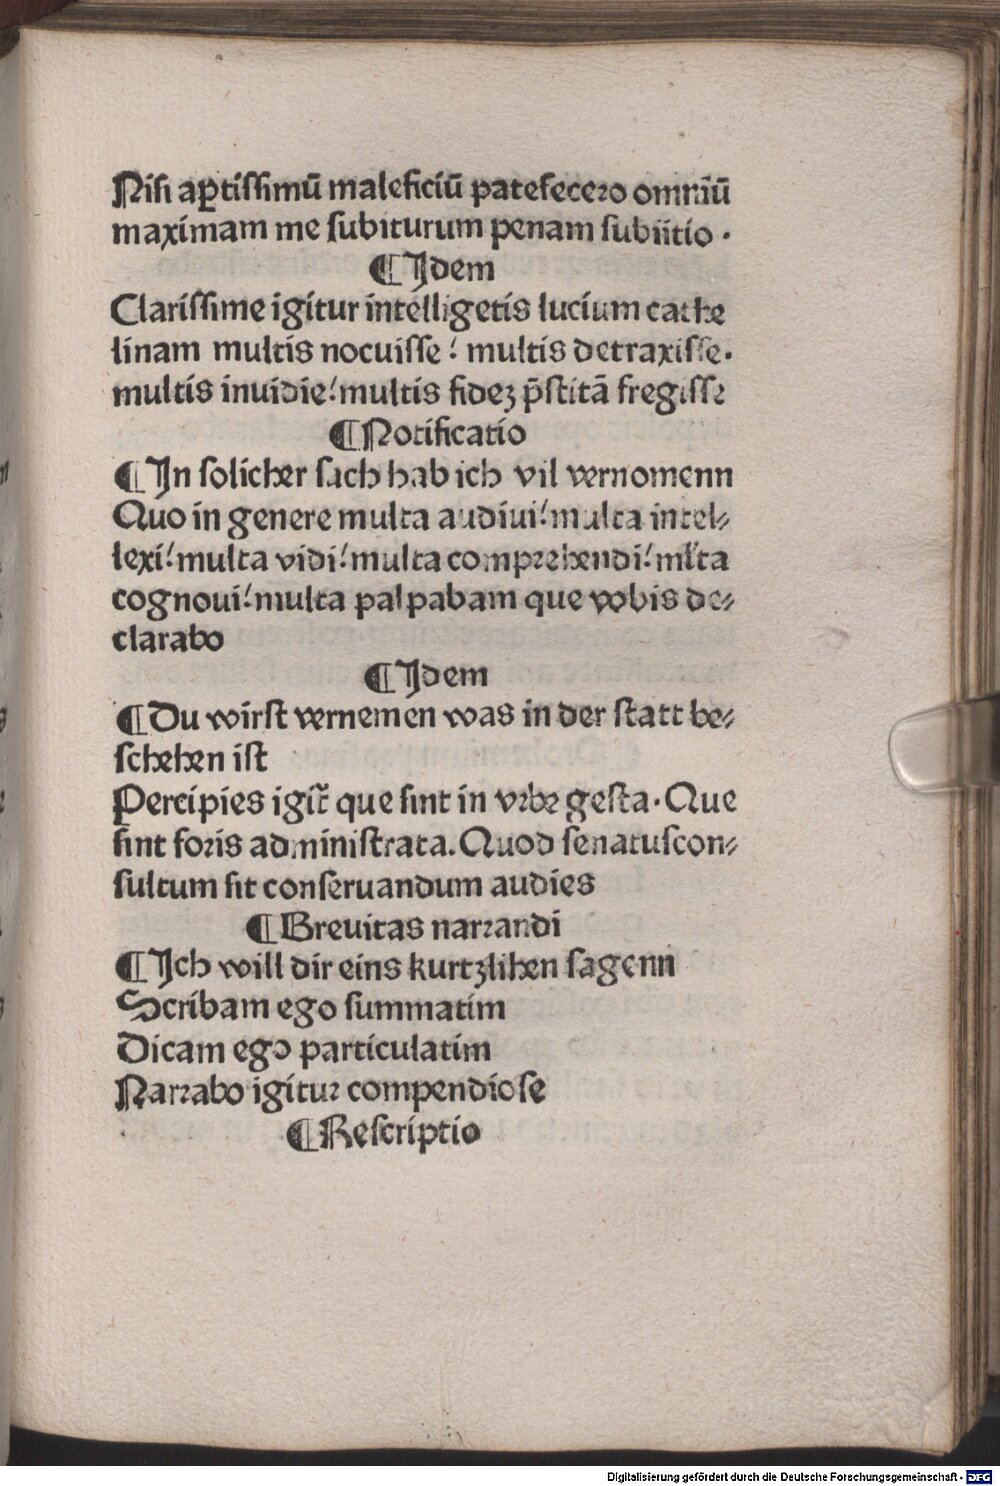 Niſi aꝑtiſſimū maleficiū patefecero omniū
maximam me ſubiturum penam ſubiitio .
¶ Idem
Clariſſime igitur intelligetis lucium cathe
linam multis nocuiſſe / multis detraxiſſe.
multis inuidie / multis fideꝫ p̄ſtitā fregiſſe
¶ Notificatio
¶ In ſolicher ſach hab ich vil vernomenn
Quo in genere multa audiui / multa intel⸗
lexi / multa vidi / multa comprehendi / ml̓ta
cognoui / multa palpabam que vobis de⸗
clarabo
¶ Idem
¶ Du wirſt vernemen was in der ſtatt be⸗
ſchehen iſt
Percipies igit᷑ que ſint in vrbe geſta. Que
ſint foris adminiſtrata. Quod ſenatuſcon⸗
ſultum ſit conſeruandum audies
¶ Breuitas narrandi
¶ Ich will dir eins kurtzlihen ſagenn
Scribam ego ſummatim
Dicam ego particulatim
Narrabo igitur compendioſe
¶ Reſcriptio
Digitalisierung gefördert durch die Deutsche Forschungsgemeinschaft - DFG